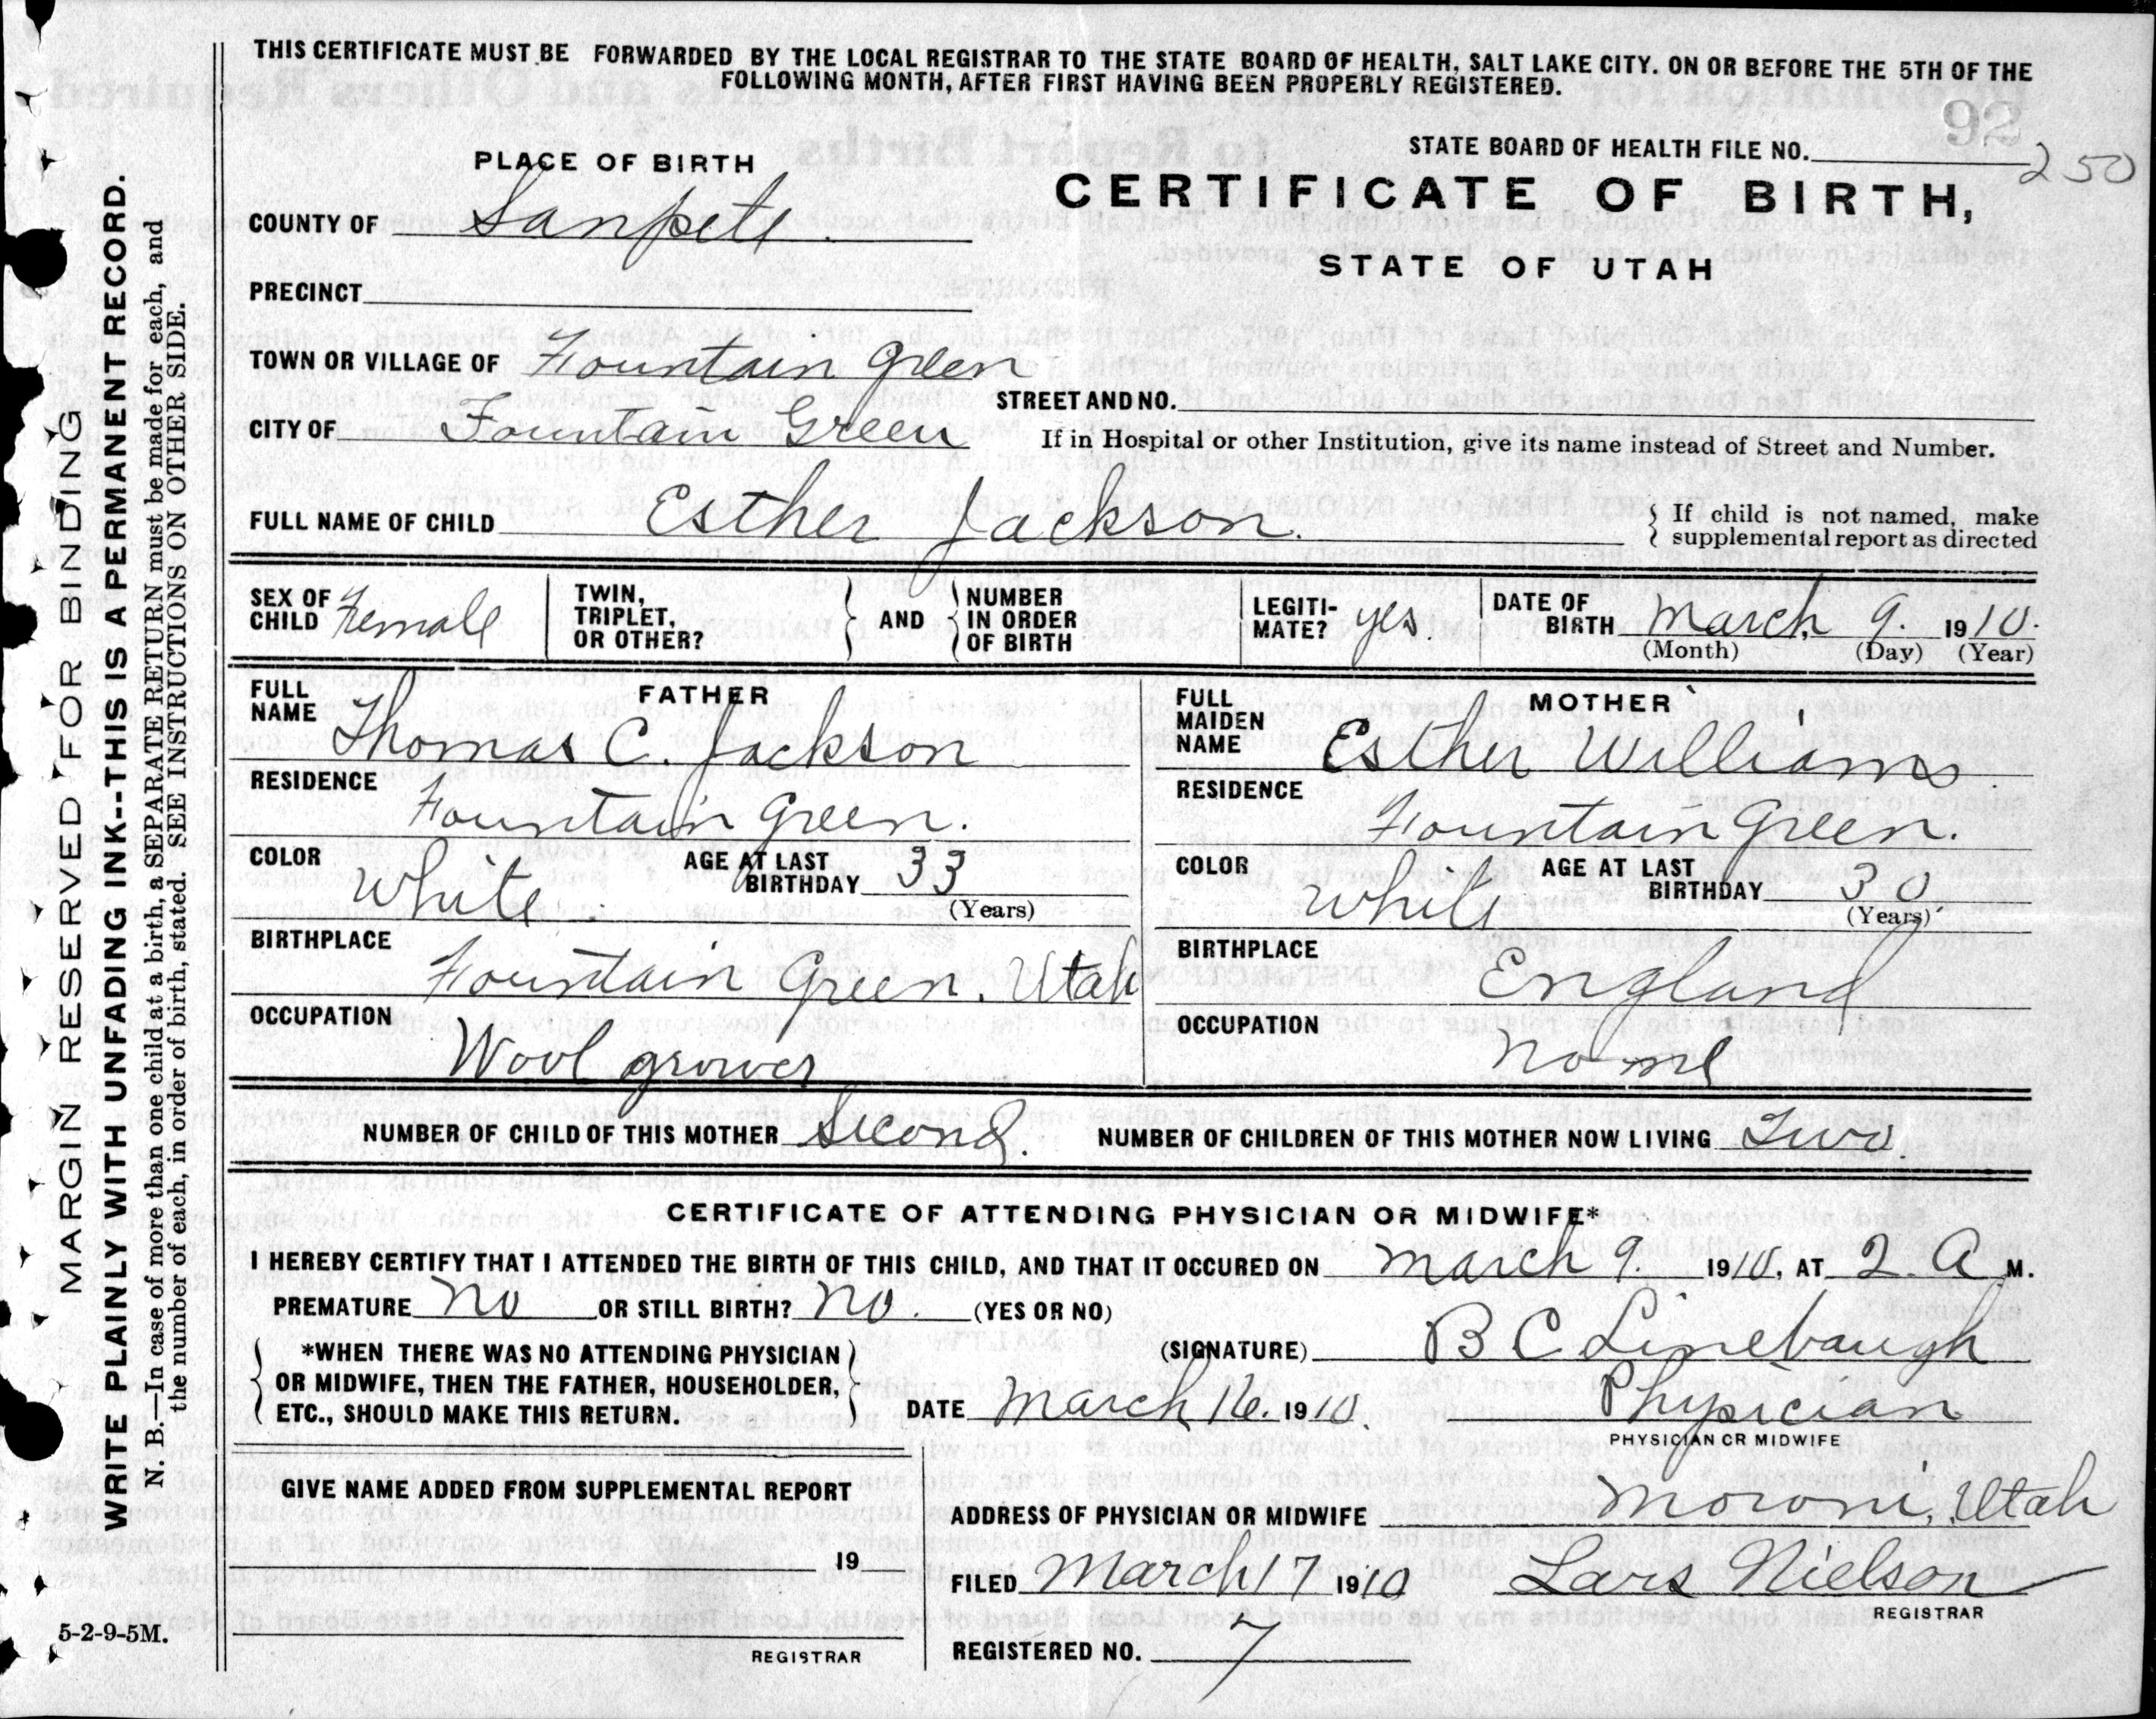 THIS CERTIFICATE MUST BE FORWARDED BY THE LOCAL REGISTRAR TO THE STATE BOARD OF HEALTH, SALT LAKE CITY. ON OR BEFORE THE 5TH OF THE
FOLLOWING MONTH, AFTER FIRST HAVING BEEN PROPERLY REGISTERED.
92
STATE BOARD OF HEALTH FILE NO. 250
PLACE OF BIRTH
CERTIFICATE OF BIRTH,
STATE OF UTAH
COUNTY OF Sanpete
PRECINCT
TOWN OR VILLAGE OF Fountain Green
STREET AND NO.
CITY OF Fountain Green
If in Hospital or other Institution, give its name instead of Street and Number.
FULL NAME OF CHILD Esther Jackson.
If child is not named, make
supplemental report as directed
SEX OF CHILD Female
TWIN, TRIPLET, OR OTHER?
AND
NUMBER IN ORDER OF BIRTH
LEGITI-MATE? yes.
DATE OF BIRTH March 9. 1910.
(Month) (Day) (Year)
FATHER
FULL NAME Thomas C. Jackson
RESIDENCE Fountain Green.
COLOR White
AGE AT LAST BIRTHDAY 33
(Years)
BIRTHPLACE Fountain Green, Utah
OCCUPATION Wool grower
MOTHER
FULL MAIDEN NAME Esther Williams
RESIDENCE Fountain Green.
COLOR White
AGE AT LAST BIRTHDAY 30
(Years)
BIRTHPLACE England
OCCUPATION None
NUMBER OF CHILD OF THIS MOTHER Second. NUMBER OF CHILDREN OF THIS MOTHER NOW LIVING Two.
CERTIFICATE OF ATTENDING PHYSICIAN OR MIDWIFE*
I HEREBY CERTIFY THAT I ATTENDED THE BIRTH OF THIS CHILD, AND THAT IT OCCURED ON March 9. 1910, AT 2. A M.
PREMATURE No OR STILL BIRTH? No. (YES OR NO)
*WHEN THERE WAS NO ATTENDING PHYSICIAN
OR MIDWIFE, THEN THE FATHER, HOUSEHOLDER,
ETC., SHOULD MAKE THIS RETURN.
(SIGNATURE) B C Linebaugh
DATE March 16. 1910. Physician
PHYSICIAN OR MIDWIFE
GIVE NAME ADDED FROM SUPPLEMENTAL REPORT
19
REGISTRAR
ADDRESS OF PHYSICIAN OR MIDWIFE Moroni, Utah
FILED March 17 1910 Lars Nielson
REGISTRAR
REGISTERED NO. 7
5-2-9-5M.
MARGIN RESERVED FOR BINDING
WRITE PLAINLY WITH UNFADING INK--THIS IS A PERMANENT RECORD.
N. B.—In case of more than one child at a birth, a SEPARATE RETURN must be made for each, and
the number of each, in order of birth, stated. SEE INSTRUCTIONS ON OTHER SIDE.